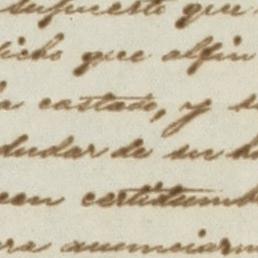 supuesto que
dicho que al fin
ha costado, y s
dudar de su h
cen certidumb
ra anunciarm